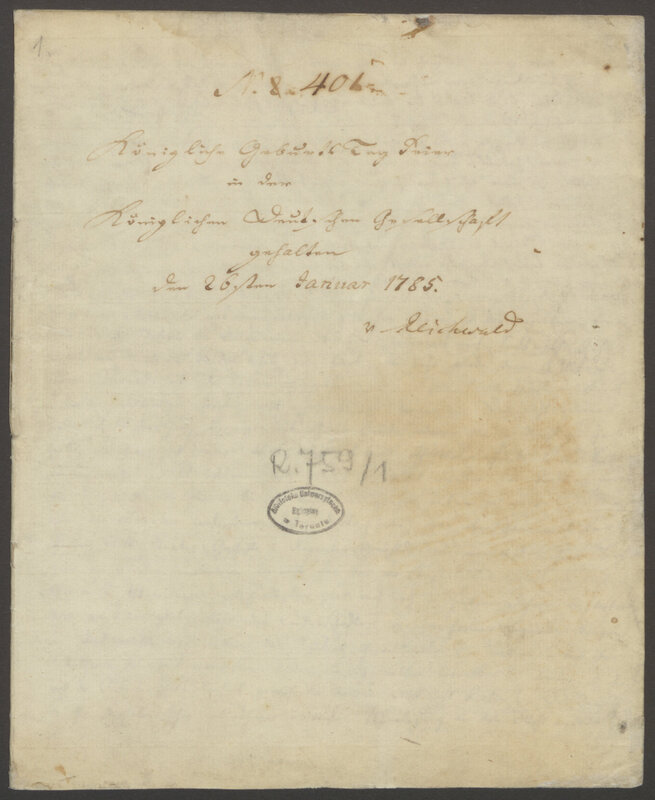 1.
N. 8. 401
Königliche Geburts Tag Feier
in der
Königlichen Deutschen Gesellschaft
gehalten
den 26sten Januar 1785.
v. Reichwald
R. 759/1
Biblioteka Uniwersytecka
w Toruniu